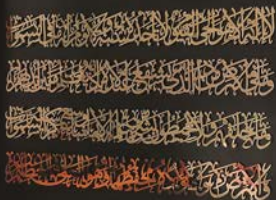 الله لا إله إلا هو الحي القيوم لا تأخذه سنة ولا نوم له ما في السموات
وما في الأرض من ذا الذي يشفع عنده إلا بإذنه يعلم ما بين أيديهم
وما خلفهم ولا يحيطون بشيء من علمه إلا بما شاء وسع كرسيه السموات
والأرض ولا يؤوده حفظهما وهو العلي العظيم